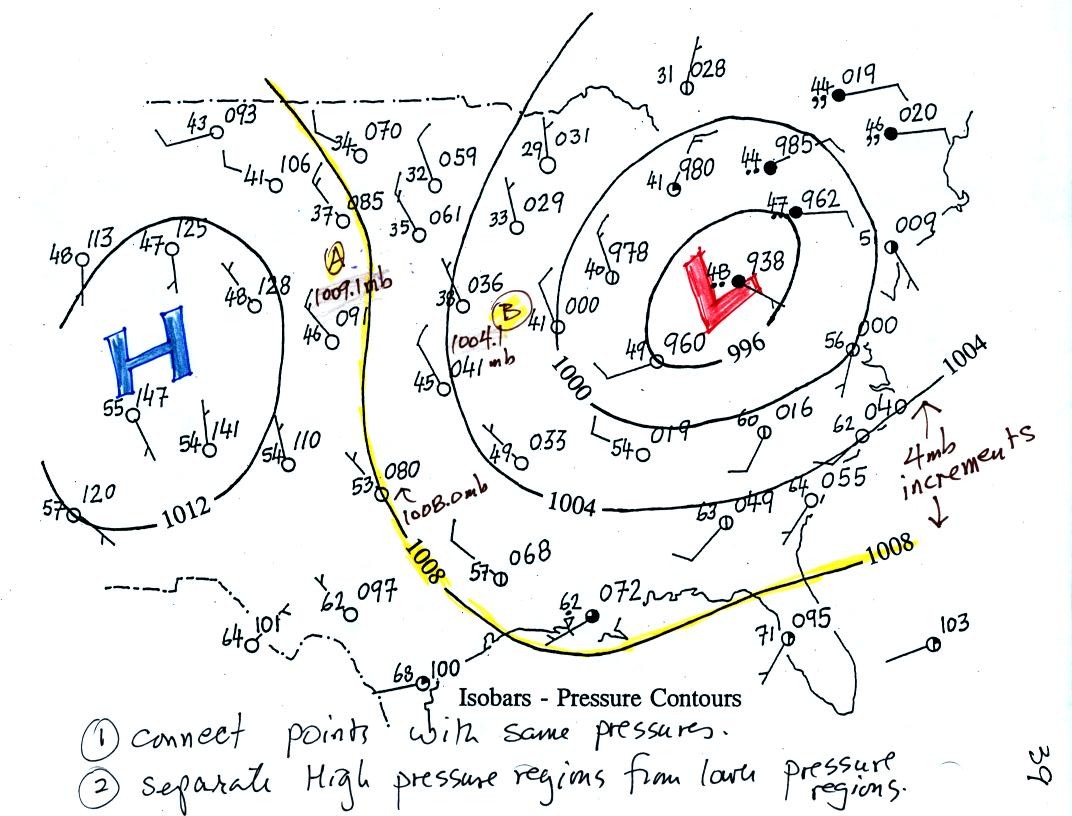 31 028
44 019
,,
46 020
,,
43 093
34 070
29 031
44 985
41 106
32 059
41 980
37 085
35 061
33 029
47 962
5 009
48 113
47 125
A
978
40
48 938
L
48 128
36 036
B
1009.1mb
41 000
46 091
H
1004.1
041 mb
49 960
996
56 000
1004
45
1000
55 147
54 141
54 110
49 033
54 019
60 016
62 040
4mb
increments
53 080
1008.0mb
57 120
1012
1004
63 049
64 055
1008
57 068
1008
62 097
62 072
64 101
71 095
103
68 100
Isobars - Pressure Contours
① connect points with same pressures.
② separate High pressure regions from lower pressure
regions.
39